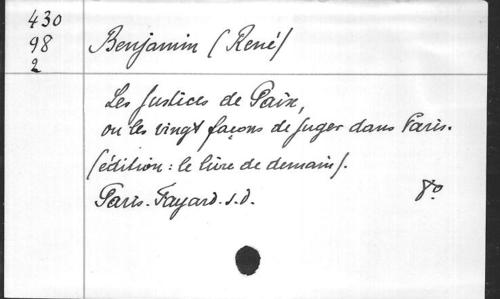 430
98
2
Benjamin (René)
Les Justices de Paix,
ou les vingt façons de juger dans Paris.
(édition: le livre de demain).
Paris. Fayard. s.d. 8o